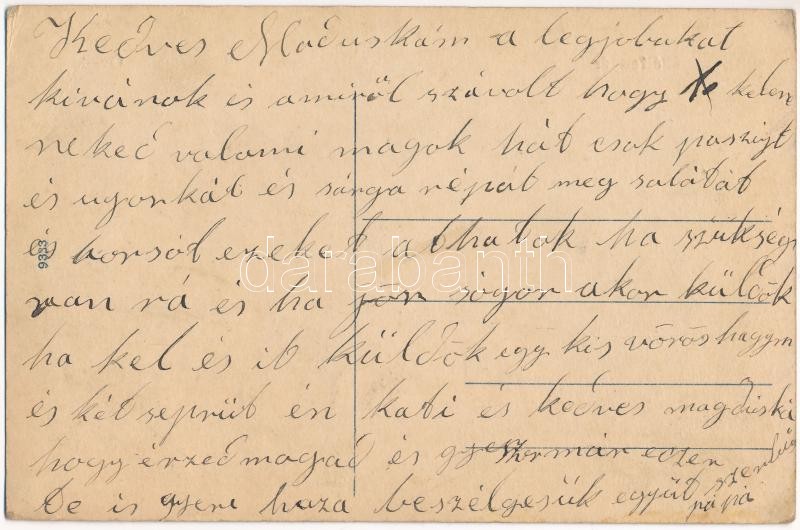 Kedves Maduskám a legjobakat
kivánok is amiről szávolt hogy kelene
neked valami magok hát csak paszigt
és ugorkát és sárga répát meg salátát
és borsót ezeket athatok ha szükség
van rá és ha jön sógor akor küldök
ha kel és it küldök egy kis vörös hagym
és két seprüt én kati és kedves magduská
hogy érzed magad és gyesz már ecer
te is gyere haza beszélgesük együt
pá pá
9383
darabanth